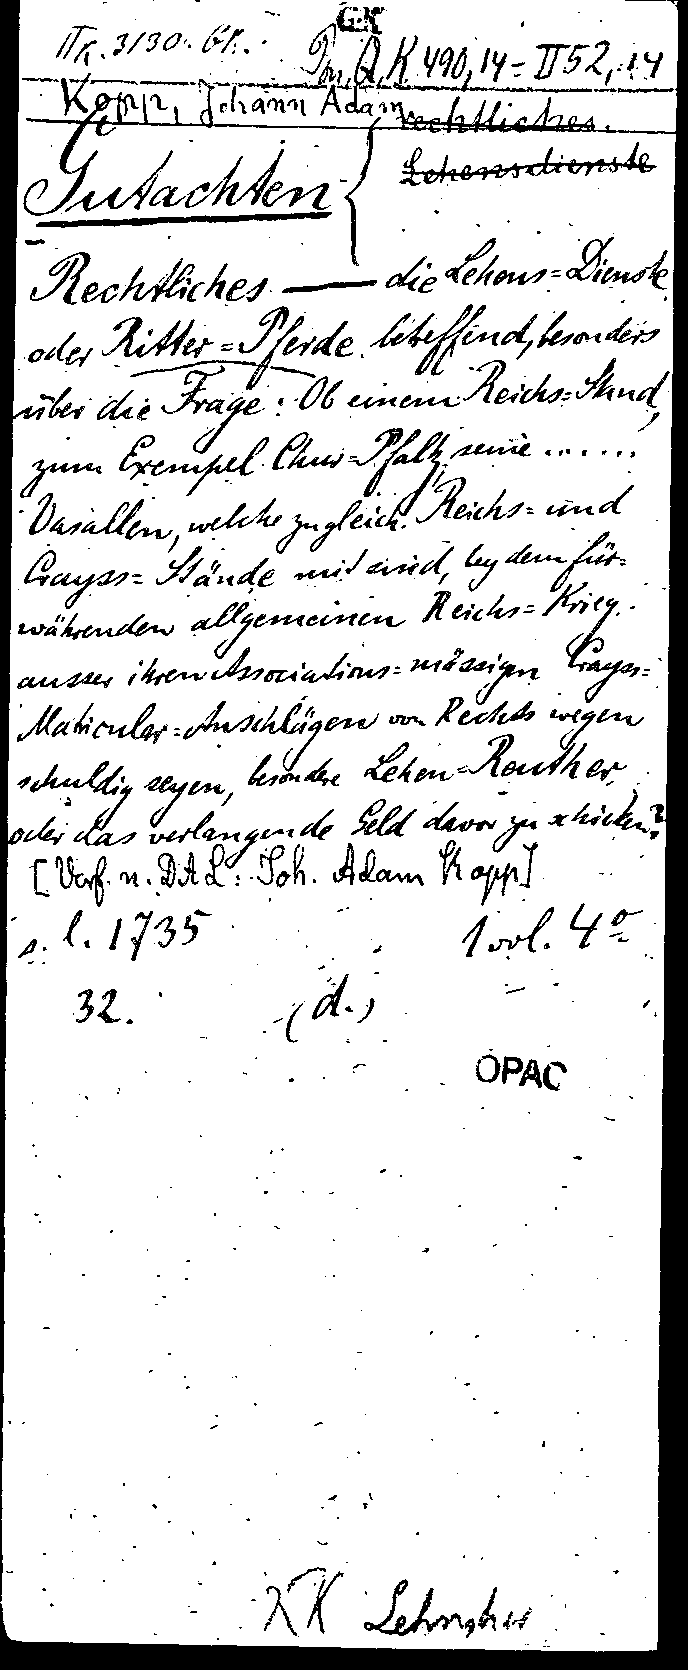 GK
IIk. 3130. Gk.
Pon. Q. K 490,14 = II 52, 14
Kopp, Johann Adam
rechtliches.
Lehensdienste
Gutachten
Rechtliches —— die Lehens=Dienste
oder Ritter=Pferde betreffend, besonders
über die Frage: Ob einem Reichs=Stand,
zum Exempel Chur=Pfaltz seine .......
Vasallen, welche zugleich Reichs= und
Crayss=Stände mit sind, bey dem für=
währenden allgemeinen Reichs=Krieg
ausser ihren Associations=mässigen Crayss=
Matricular=Anschlägen von Rechts wegen
schuldig seyen, besondere Lehen=Reuther
oder das verlangende Geld davor zu schicken?
[Verf. n. DAL: Joh. Adam Kopp]
s. l. 1735 1 vol. 4º
32. (d.)
OPAC
KK